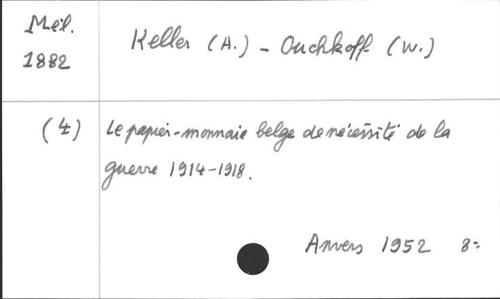 Mél.
1882
Keller (A.) - Ouchkoff (W.)
(4)
Le papier-monnaie belge de nécessité de la
guerre 1914-1918.
Anvers 1952 8=